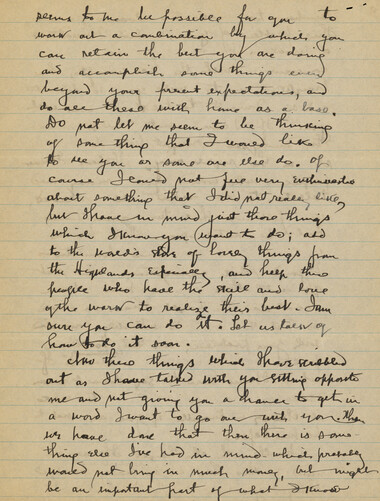 seems to me be possible for you to
work out a combination by which you
can retain the best you are doing
and accomplish some things even
beyond your present expectations, and
do all these with home as a base.
Do not let me seem to be thinking
of some thing that I would like
to see you or some one else do. Of
course I could not feel very enthusiastic
about something that I did not really like,
but I have in mind just those things
which I know you want to do; add
to the world's store of lovely things from
the Highlands Especially, and help those
people who have the skill and love
of the work to realize their best. I am
sure you can do it. Let us talk of
how to do it soon.
Now these things which I have scribbled
out as I have talked with you sitting opposite
me and not giving you a chance to get in
a word I want to go over with you. When
we have done that then there is some
thing else I've had in mind which probably
would not bring in much money, but might
be an important part of what I know